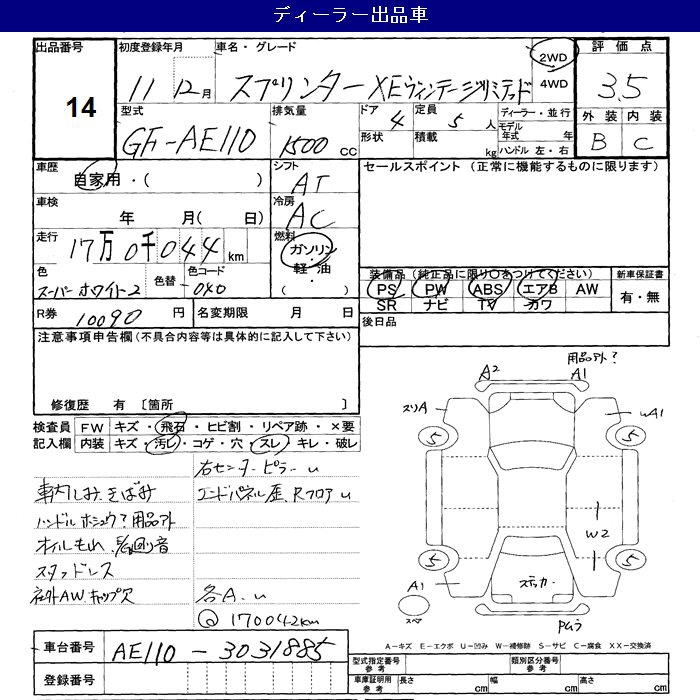 ディーラー出品車
出品番号 14
初度登録年月 11 12月
車名・グレード スプリンター XEヴィンテージリミテッド
2WD
4WD
評価点 3.5
外装 B 内装 C
型式 GF-AE110
排気量 1500 CC
ドア 4
形状
定員 5 人
積載 kg
ディーラー・並行
モデル年式 年
ハンドル 左・右
車歴 自家用・( )
シフト AT
セールスポイント (正常に機能するものに限ります)
車検 年 月( 日)
冷房 AC
走行 17万0千044km
燃料 ガソリン・軽油・( )
色 スーパーホワイト2
色替
色コード 040
装備品(純正品に限り○をつけてください)
PS PW ABS エアB AW
SR ナビ TV カワ
新車保証書 有・無
R券 10090 円
名変期限 月 日
後日品
注意事項申告欄(不具合内容等は具体的に記入して下さい)
修復歴 有 [箇所 ]
検査員記入欄
FW キズ・飛石・ヒビ割・リペア跡・×要
内装 キズ・汚レ・コゲ・穴・スレ・キレ・破レ
右センターピラーu
車内しみ、きばみ
エンドパネル座、Rフロアu
ハンドルホシュウ?用品外
オイルもれ、E/G回り音
スタッドレス
社外AW、キャップ欠
各A.u
@ 170042km
用品外?
A2 A1
スリA uA1
5 5
W2
5 5
A1 ステッカー
スペア
PAうラ
A-キズ E-エクボ U-凹み W-補修跡 S-サビ C-腐食 XX-交換済
車台番号 AE110-3031885
登録番号
型式指定番号 参考
類別区分番号 参考
車庫証明用 参考 長さ cm 幅 cm 高さ cm